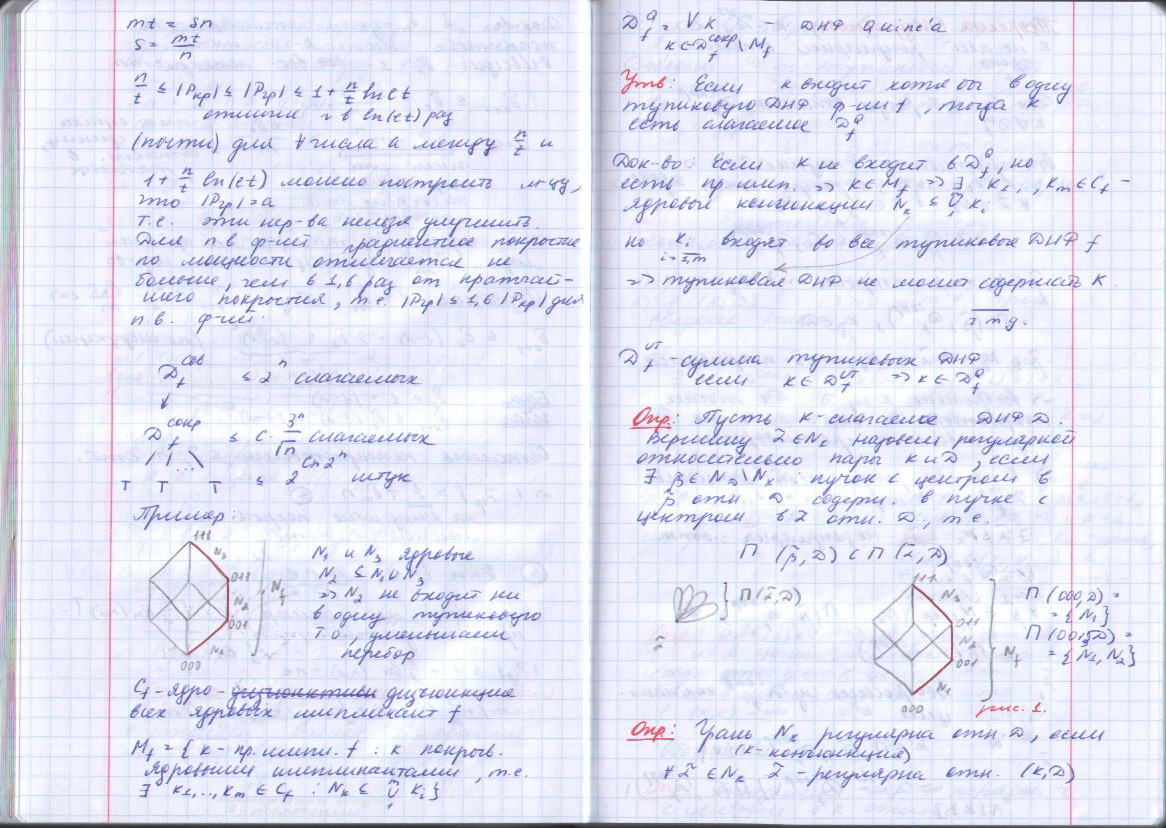 mt = sn
s = mt/n
n/t ≤ |Pкр| ≤ |Pгр| ≤ 1 + n/t ln(t)
отличие в ln(t) раз
(почти) для ∀ числа a между n/t и
1 + n/t ln(t) можно построить м-цу,
что |Pгр| = a
т.е. эти нер-ва нельзя улучшить.
Для п.в. ф-ий градиентное покрытие
по мощности отличается не
больше, чем в 1,6 раз от кратчай-
шего покрытия, т.е. |Pгр| ≤ 1,6 |Pкр| для
п.в. ф-ий.
D_f^сов ≤ 2^n слагаемых
D_f^сокр ≤ C · 3^n/√n слагаемых
T T T ≤ 2^(Cn2^n) штук
Пример:
111
N3
011
N2
001
N1
000
N_f
N1 и N3 ядровые
N2 ⊆ N1 ∪ N3
=> N2 не входит ни
в одну тупиковую
т.о. уменьшаем
перебор
C_f - ядро - дизъюнкция
всех ядровых импликант f
M_f = { K - пр. импл. f : K покрыв.
ядровыми импликантами, т.е.
∃ K1,..,Km ∈ C_f : N_K ⊆ ∪ Ki }
D_f^Q = V K - ДНФ Quine'a
K ∈ D_f^сокр \ M_f
Утв: Если K входит хотя бы в одну
тупиковую ДНФ ф-ии f, тогда K
есть слагаемое D_f^Q
Док-во: Если K не входит в D_f^Q, но
есть пр. импл. => K ∈ M_f => ∃ K1,..,Km ∈ C_f -
ядровые конъюнкции N_K ⊆ ∪ Ki
но Ki входят во все тупиковые ДНФ f
i=1,m
=> тупиковая ДНФ не может содержать K.
ч.т.д.
D_f^ΣT - сумма тупиковых ДНФ
если K ∈ D_f^ΣT => K ∈ D_f^Q
Опр: Пусть K - слагаемое ДНФ D.
Вершину α̃ ∈ N_K назовем регулярной
относительно пары K и D, если
∃ β̃ ∈ N_D \ N_K пучок с центром в
β̃ отн. D содерж. в пучке с
центром в α̃ отн. D, т.е.
П (β̃, D) ⊂ П (α̃, D)
} П (α̃, D)
α̃
111
N3
011
N2
001
N1
000
N_f
П (000, D) =
= {N1}
П (001, D) =
= {N1, N2}
рис. 1.
Опр: Грань N_K регулярна отн. D, если
(K - конъюнкция)
∀ α̃ ∈ N_K α̃ - регулярна отн. (K, D)